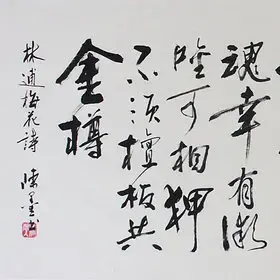 魂幸有微
唫可相狎
不須檀板共
金樽
林逋梅花詩 陳